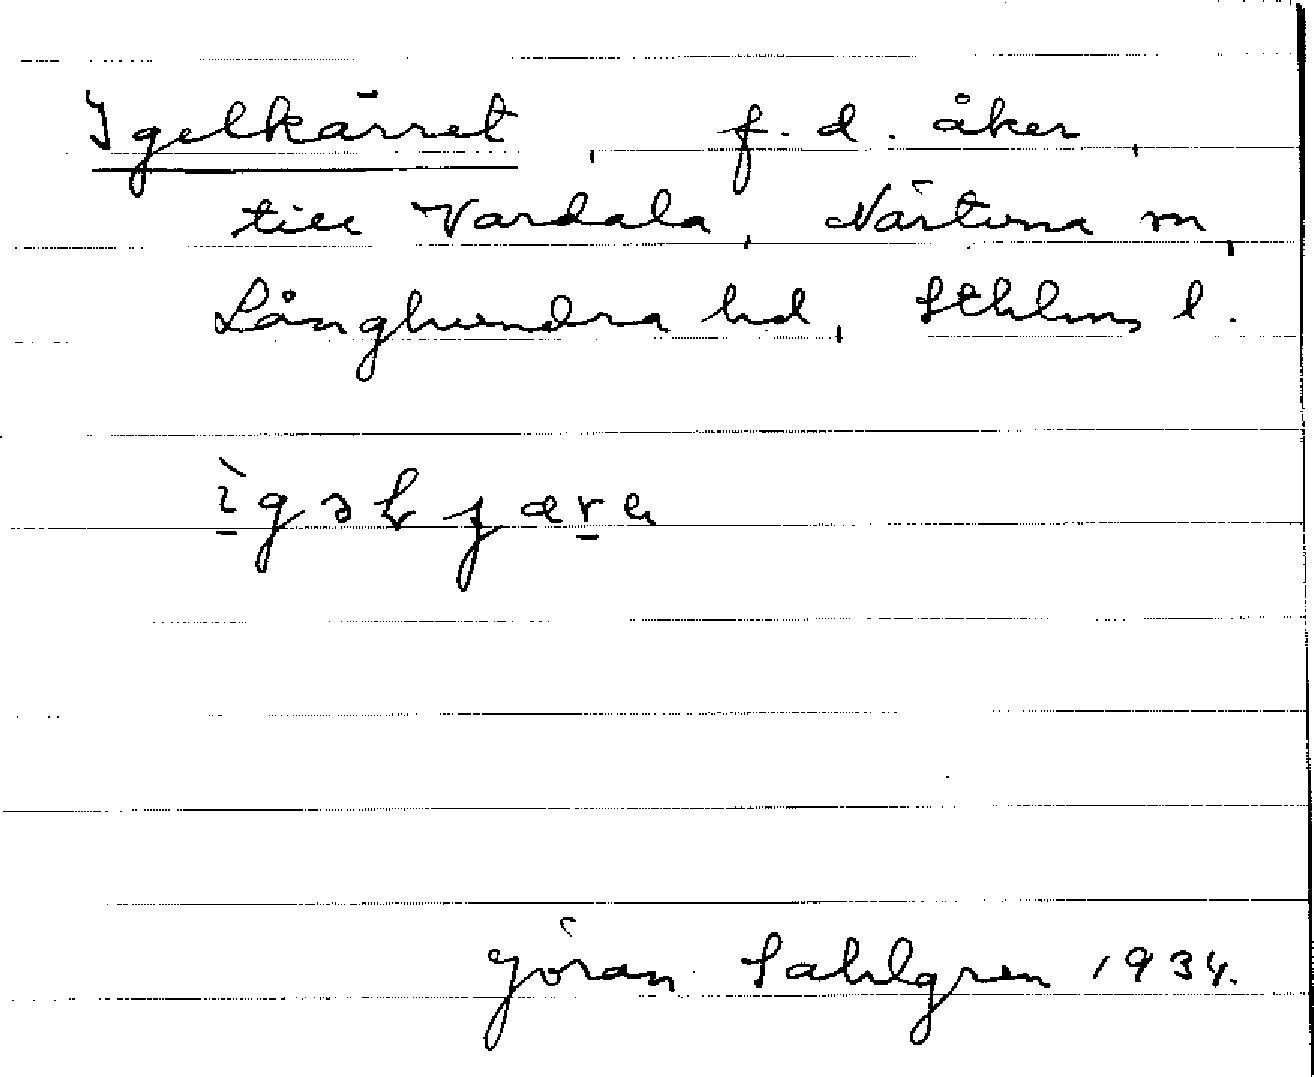 Igelkärret, f. d. åker,
till Vardala, Närtuna sn,
Långhundra hd, Sthlms l.
ìgəlkjærə
Göran Sahlgren 1934.